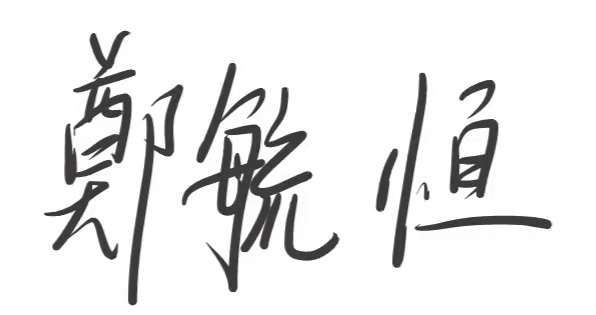 鄭毓恒